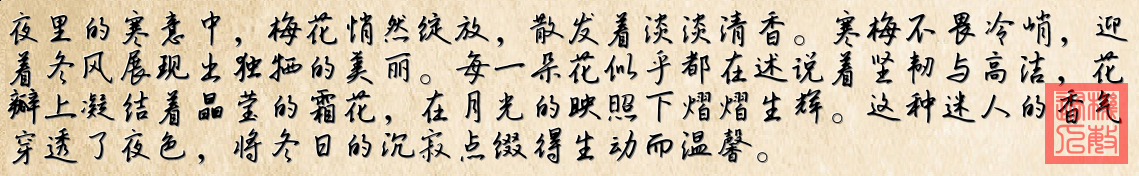 夜里的寒意中，梅花悄然绽放，散发着淡淡清香。寒梅不畏冷峭，迎
着冬风展现出独特的美丽。每一朵花似乎都在述说着坚韧与高洁，花
瓣上凝结着晶莹的霜花，在月光的映照下熠熠生辉。这种迷人的香气
穿透了夜色，将冬日的沉寂点缀得生动而温馨。